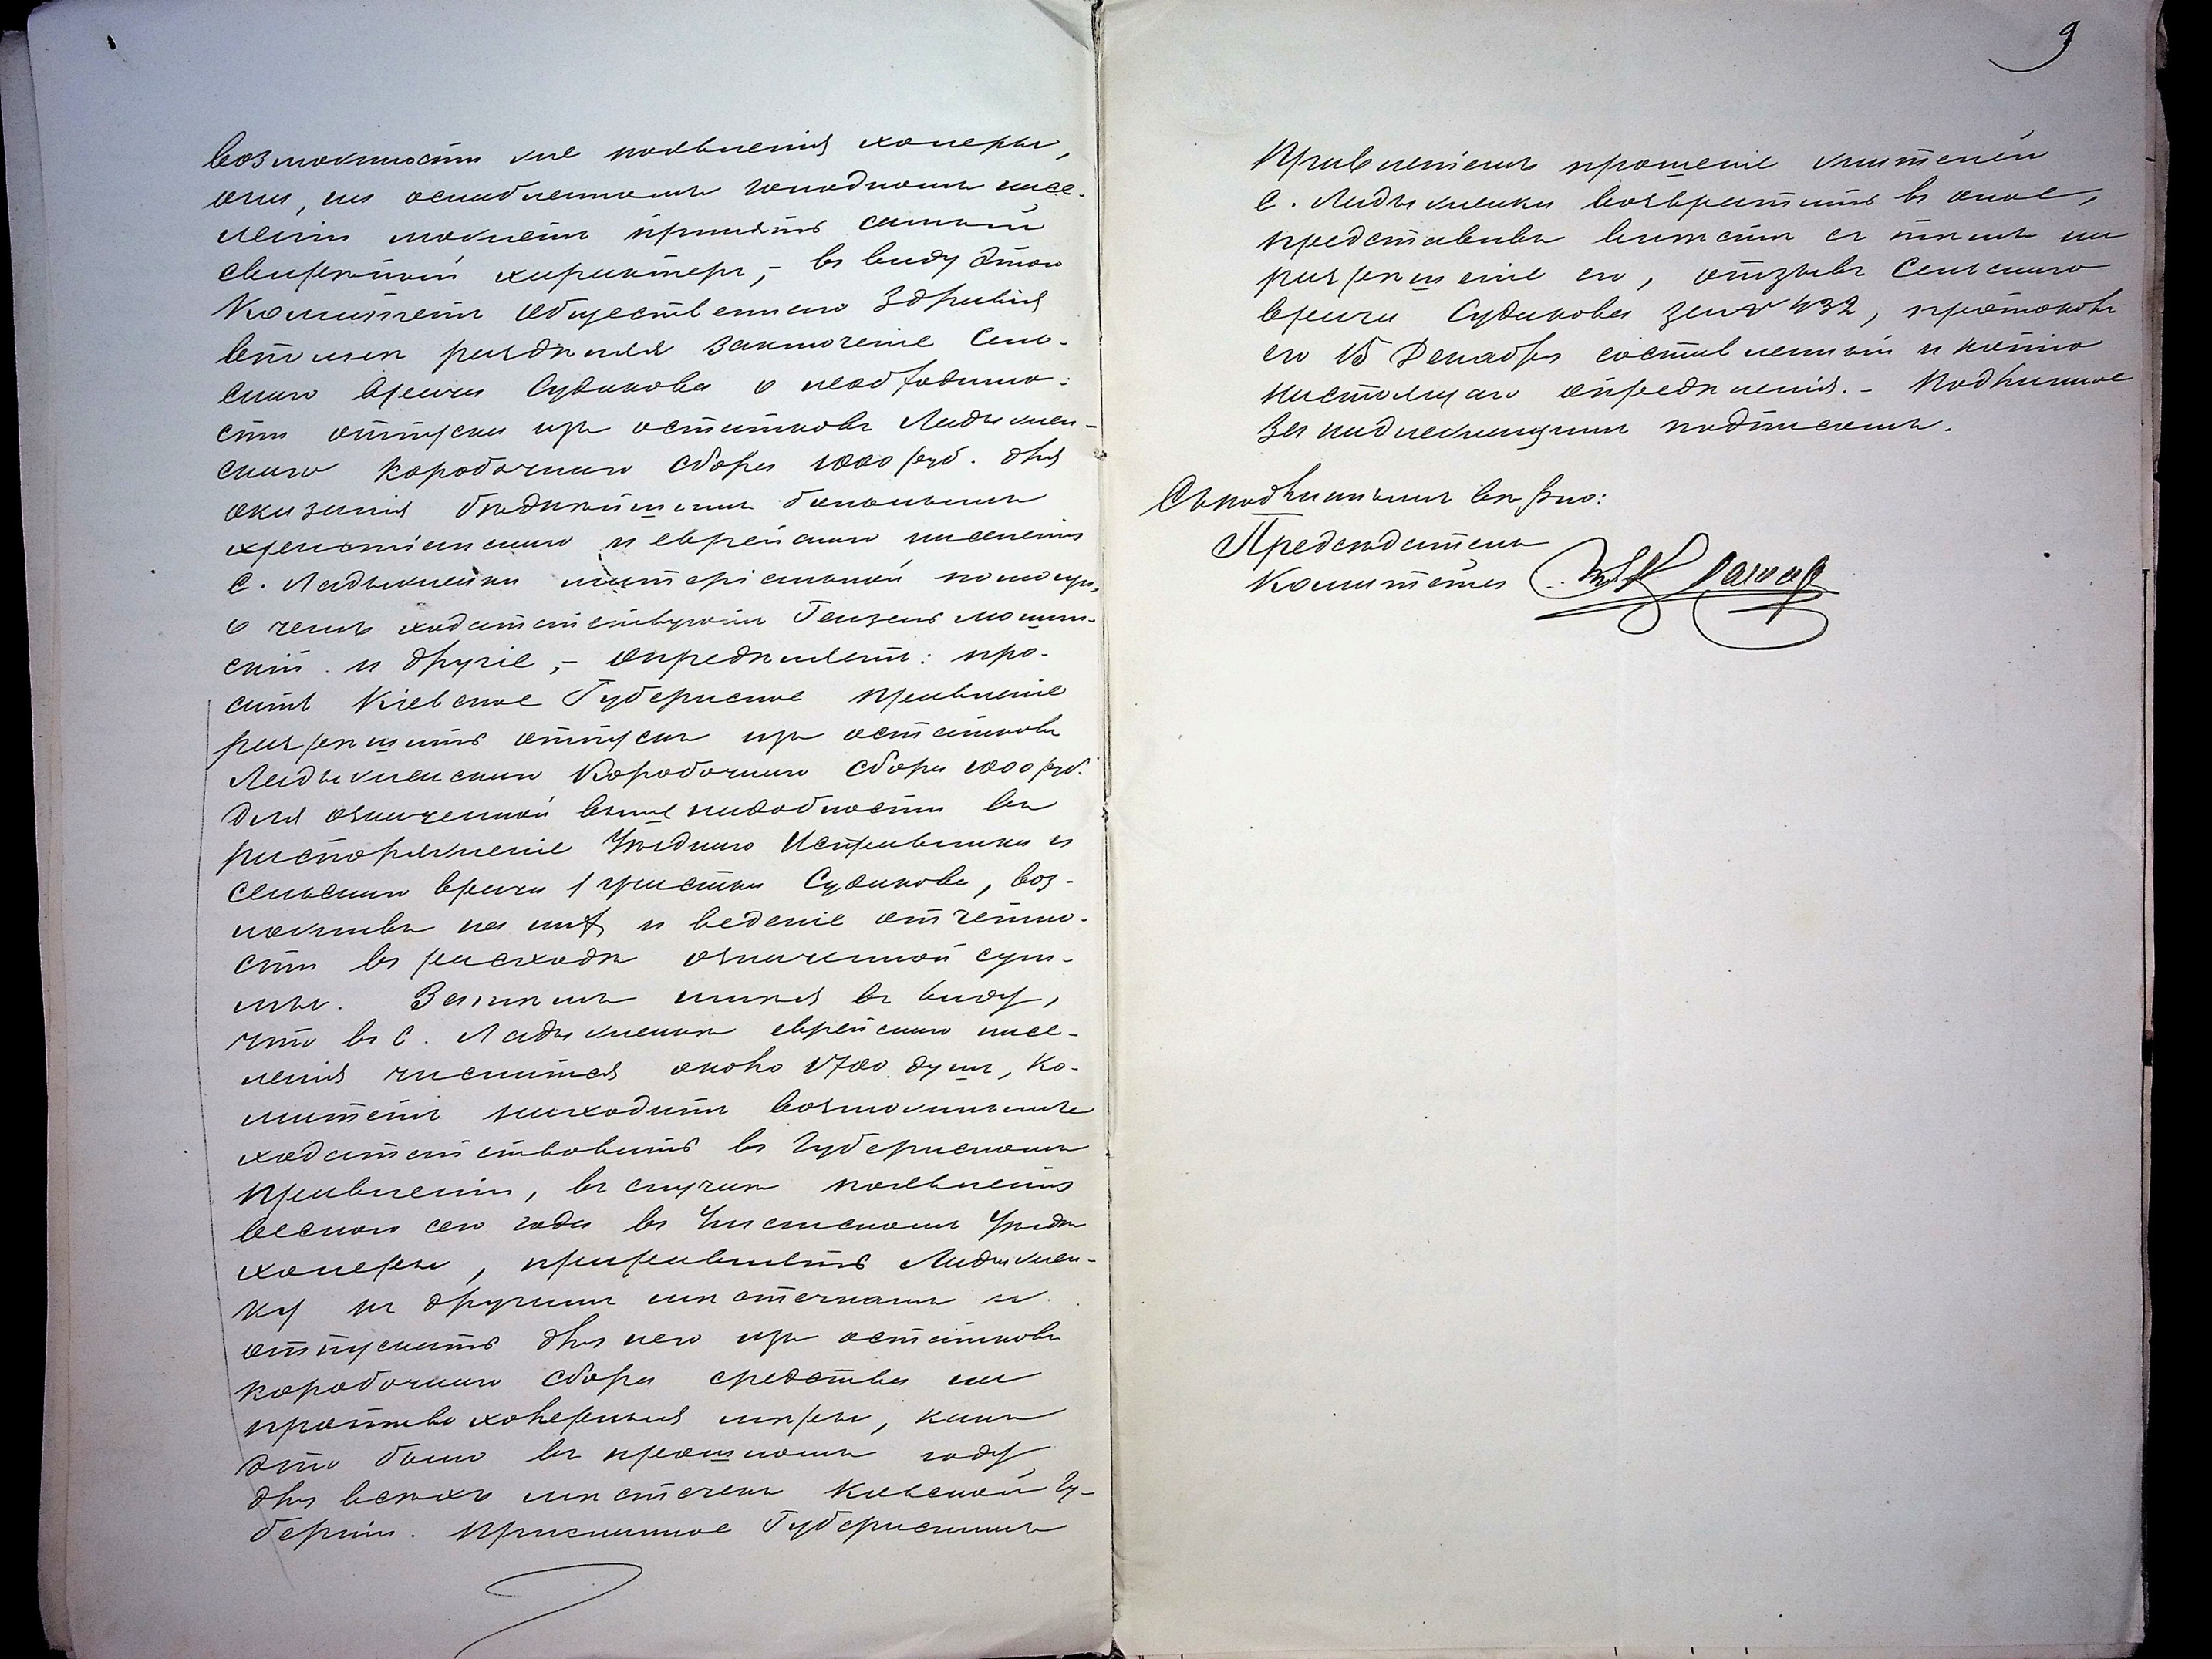 9
возможности же появленія холеры,
она, на ослабленномъ голодномъ насе-
леніи можетъ принять самый
свирѣпый характеръ, - въ виду этого
Комитетъ Общественнаго Здравія
вполнѣ раздѣляя заключеніе Сель-
скаго врача Судакова о необходимо-
сти отпуска изъ остатковъ Ладыжин-
скаго Коробочнаго сбора 1000 руб. для
оказанія бѣднѣйшимъ больнымъ
христіанскаго и еврейскаго населенія
с. Ладыжинки матеріальной помощи,
о чемъ ходатайствуютъ
и другіе, - опредѣляетъ: про-
сить Кіевское Губернское Правленіе
разрѣшить отпускъ изъ остатковъ
Ладыжинскаго Коробочнаго сбора 1000 руб.
для означенной выше надобности въ
распоряженіе Уѣзднаго Исправника и
сельскаго врача 1 участка Судакова, воз-
ложивъ на нихъ и веденіе отчетно-
сти въ расходѣ означенной сум-
мы. Затѣмъ имѣя въ виду,
что въ с. Ладыжинкѣ еврейскаго насе-
ленія числится около 1700 душъ, Ко-
митетъ находитъ возможнымъ
ходатайствовать въ Губернскомъ
Правленіи, въ случаѣ появленія
весною сего года въ Уманскомъ Уѣздѣ
холеры, приравнять Ладыжин-
ку къ другимъ мѣстечкамъ и
отпускать для него изъ остатковъ
коробочнаго сбора средства на
противохолерныя мѣры, какъ
это было въ прошломъ году
для всѣхъ мѣстечекъ Кіевской Гу-
берніи. Присланное Губернскимъ
Правленіемъ прошеніе жителей
с. Ладыжинки возвратить въ оное,
представивъ вмѣстѣ съ тѣмъ на
разрѣшеніе его, отзывъ Сельскаго
врача Судакова за № 432, протоколъ
его 15 Декабря составленный и копію
настоящаго опредѣленія. - Подлинное
за надлежащимъ подписомъ.
Съ подлиннымъ вѣрно:
Предсѣдатель
Комитета